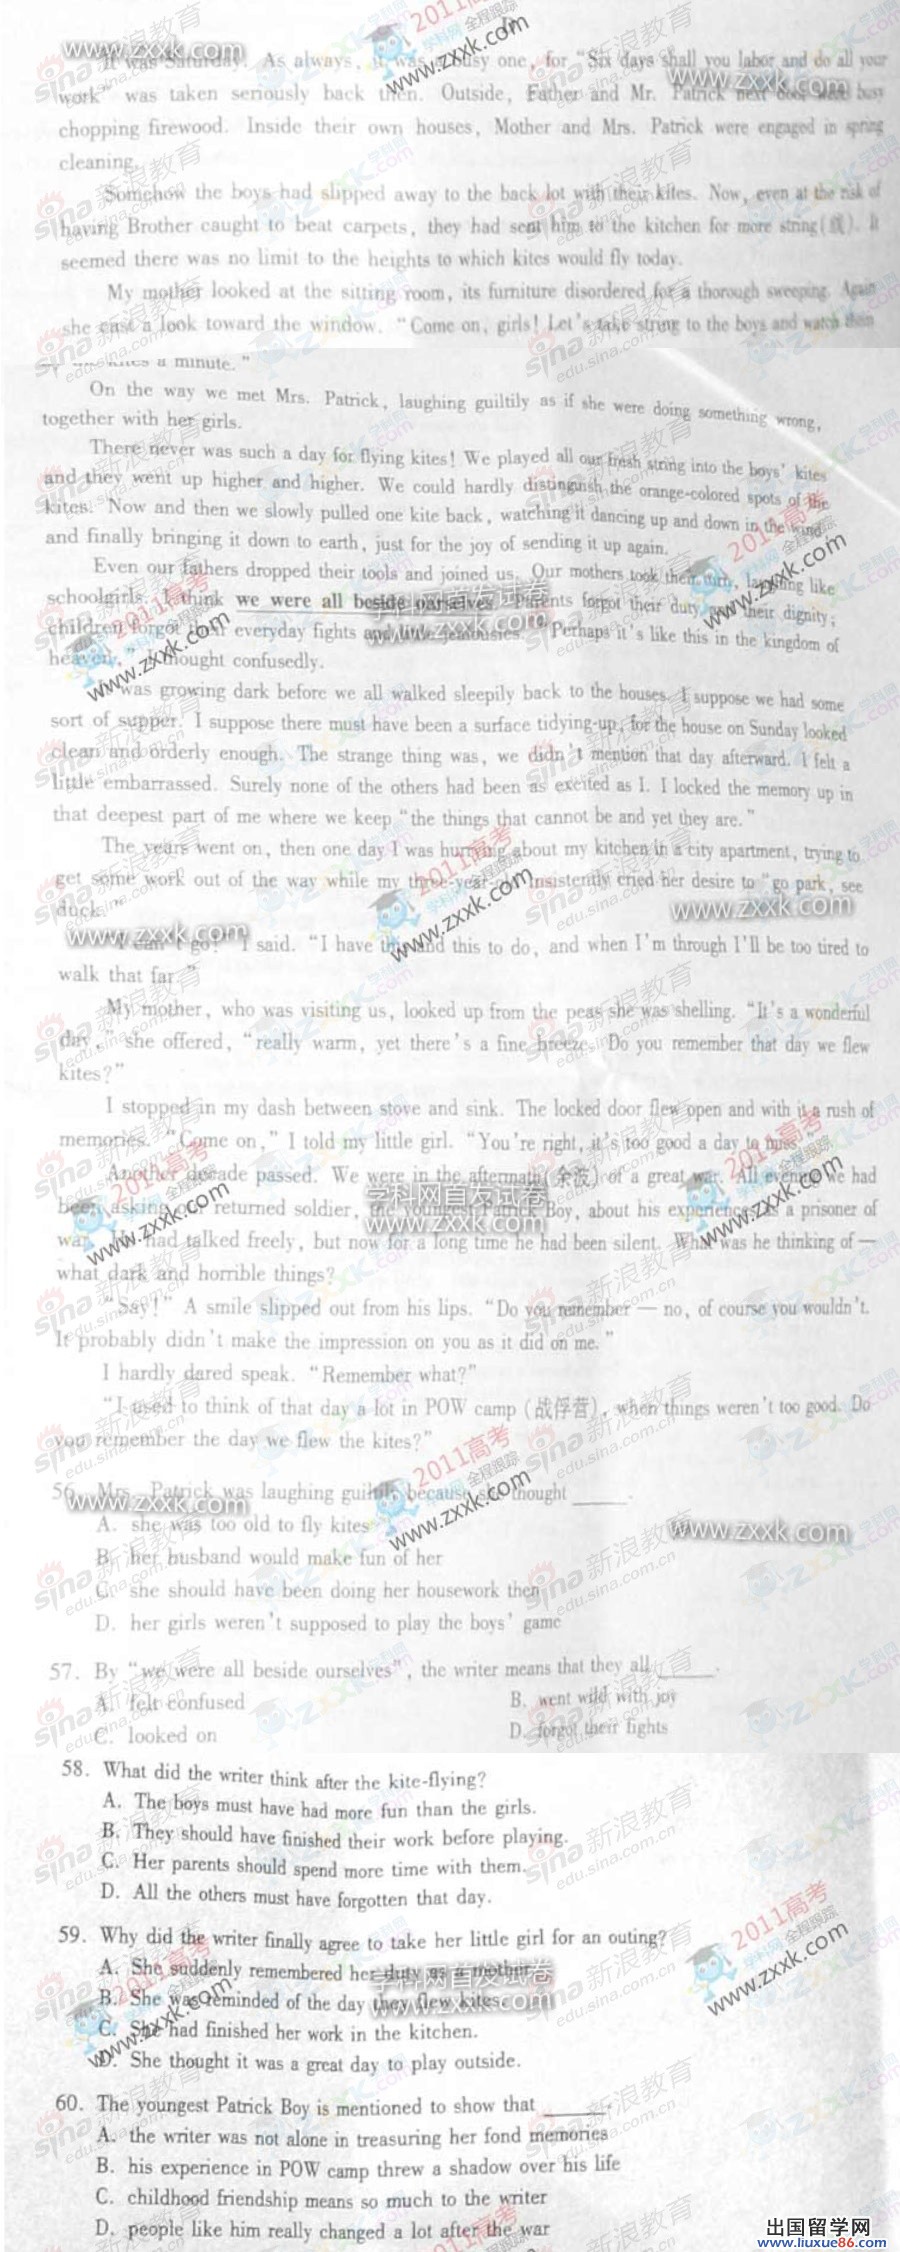 It was Saturday. As always, it was a busy one, for "Six days shall you labor and do all your
work" was taken seriously back then. Outside, Father and Mr. Patrick next door were busy
chopping firewood. Inside their own houses, Mother and Mrs. Patrick were engaged in spring
cleaning.
Somehow the boys had slipped away to the back lot with their kites. Now, even at the risk of
having Brother caught to beat carpets, they had sent him to the kitchen for more string(线). It
seemed there was no limit to the heights to which kites would fly today.
My mother looked at the sitting room, its furniture disordered for a thorough sweeping. Again
she cast a look toward the window. "Come on, girls! Let's take string to the boys and watch them
kites a minute."
On the way we met Mrs. Patrick, laughing guiltily as if she were doing something wrong,
together with her girls.
There never was such a day for flying kites! We played all our fresh string into the boys' kites
and they went up higher and higher. We could hardly distinguish the orange-colored spots of the
kites. Now and then we slowly pulled one kite back, watching it dancing up and down in the wind,
and finally bringing it down to earth, just for the joy of sending it up again.
Even our fathers dropped their tools and joined us. Our mothers took their turn, laughing like
schoolgirls. I think we were all beside ourselves. Parents forgot their duty and their dignity;
children forgot their everyday fights and little jealousies. "Perhaps it's like this in the kingdom of
heaven," I thought confusedly.
It was growing dark before we all walked sleepily back to the houses. I suppose we had some
sort of supper. I suppose there must have been a surface tidying-up, for the house on Sunday looked
clean and orderly enough. The strange thing was, we didn't mention that day afterward. I felt a
little embarrassed. Surely none of the others had been as excited as I. I locked the memory up in
that deepest part of me where we keep "the things that cannot be and yet they are."
The years went on, then one day I was hurrying about my kitchen in a city apartment, trying to
get some work out of the way while my three-year-old insistently cried her desire to "go park, see
duck."
"I can't go!" I said. "I have this and this to do, and when I'm through I'll be too tired to
walk that far."
My mother, who was visiting us, looked up from the peas she was shelling. "It's a wonderful
day," she offered, "really warm, yet there's a fine breeze. Do you remember that day we flew
kites?"
I stopped in my dash between stove and sink. The locked door flew open and with it a rush of
memories. "Come on," I told my little girl. "You're right, it's too good a day to miss."
Another decade passed. We were in the aftermath(余波) of a great war. All evening we had
been asking our returned soldier, the youngest Patrick Boy, about his experiences as a prisoner of
war. He had talked freely, but now for a long time he had been silent. What was he thinking of —
what dark and horrible things?
"Say!" A smile slipped out from his lips. "Do you remember — no, of course you wouldn't.
It probably didn't make the impression on you as it did on me."
I hardly dared speak. "Remember what?"
"I used to think of that day a lot in POW camp (战俘营), when things weren't too good. Do
you remember the day we flew the kites?"
56. Mrs. Patrick was laughing guiltily because she thought ______.
A. she was too old to fly kites
B. her husband would make fun of her
C. she should have been doing her housework then
D. her girls weren't supposed to play the boys' game
57. By "we were all beside ourselves", the writer means that they all ______.
A. felt confused B. went wild with joy
C. looked on D. forgot their fights
58. What did the writer think after the kite-flying?
A. The boys must have had more fun than the girls.
B. They should have finished their work before playing.
C. Her parents should spend more time with them.
D. All the others must have forgotten that day.
59. Why did the writer finally agree to take her little girl for an outing?
A. She suddenly remembered her duty as a mother.
B. She was reminded of the day they flew kites.
C. She had finished her work in the kitchen.
D. She thought it was a great day to play outside.
60. The youngest Patrick Boy is mentioned to show that ______.
A. the writer was not alone in treasuring her fond memories
B. his experience in POW camp threw a shadow over his life
C. childhood friendship means so much to the writer
D. people like him really changed a lot after the war
出国留学网
www.liuxue86.com